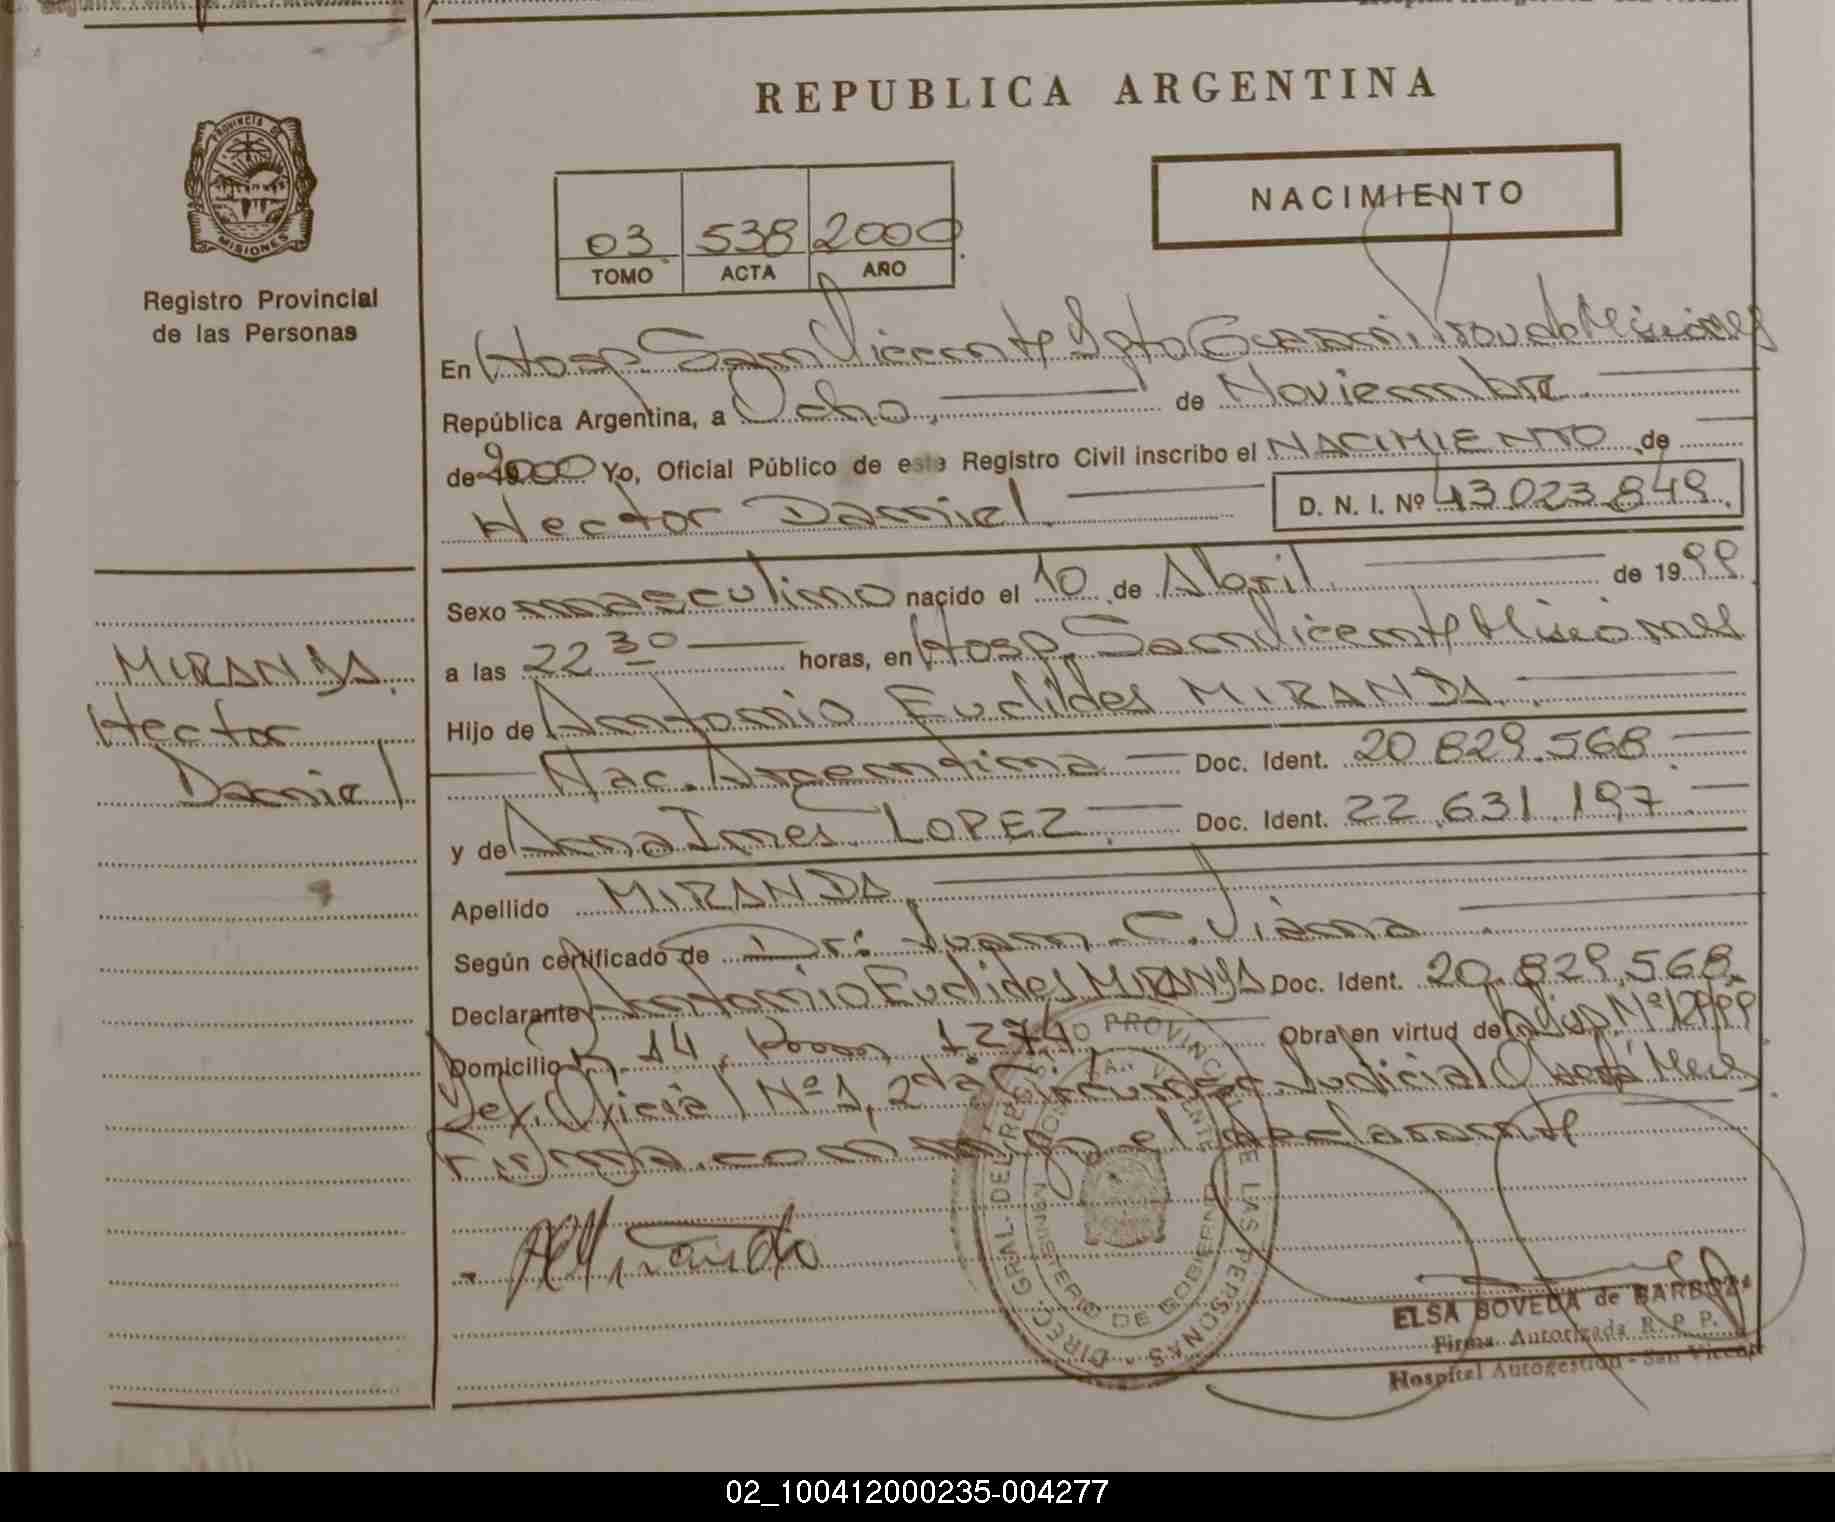 REPUBLICA ARGENTINA
PROVINCIA DE
MISIONES
Registro Provincial
de las Personas
NACIMIENTO
03 538 2000
TOMO ACTA AÑO
En Hosp. San Vicente Dpto Guarani, Prov de Misiones
República Argentina, a Ocho de Noviembre
de 2000 Yo, Oficial Público de este Registro Civil inscribo el NACIMIENTO de
Hector Daniel D. N. I. Nº 43 023 849
Sexo masculino nacido el 10 de Abril de 19 99
a las 22 30 horas, en Hosp. San Vicente Misiones
Hijo de Antonio Euclides MIRANDA
Nac. Argentina Doc. Ident. 20 829.568
y de Anna Ines LOPEZ Doc. Ident. 22 631 197
Apellido MIRANDA
Según certificado de Dr: Juan C. Viana
Declarante Antonio Euclides MIRANDA Doc. Ident. 20.829.568
Domicilio 14, 1274 Obra en virtud de Nº
Def. Oficial Nº 1, 2da Circunsc. Judicial Oberá Mes
Firma con el declarante
MIRANDA
Hector
Daniel
DIREC. GRAL. DEL REGISTRO PROVINCIAL DE LAS PERSONAS
MINISTERIO DE GOBIERNO
ELSA BOVEDA de BARBOZA
Firma Autorizada R. P. P.
Hospital Autogestión - San Vicente
02_100412000235-004277